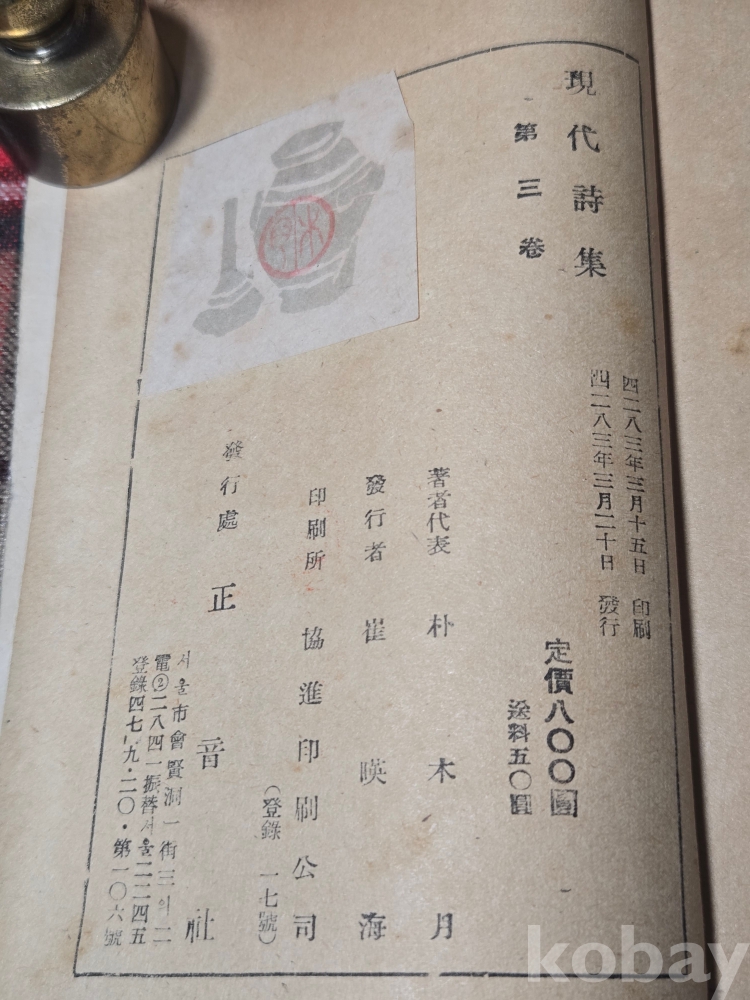 現代詩集
第三卷
四二八三年三月十五日 印刷
四二八三年三月二十日 發行
定價八〇〇圓
送料五〇圓
著者代表 朴木月
發行者 崔暎海
印刷所 協進印刷公司
(登錄 一七號)
發行處 正音社
서울市會賢洞一街三의二
電②二八四一振替서울二二四五
登錄四七·九·二〇·第一〇六號
kobay